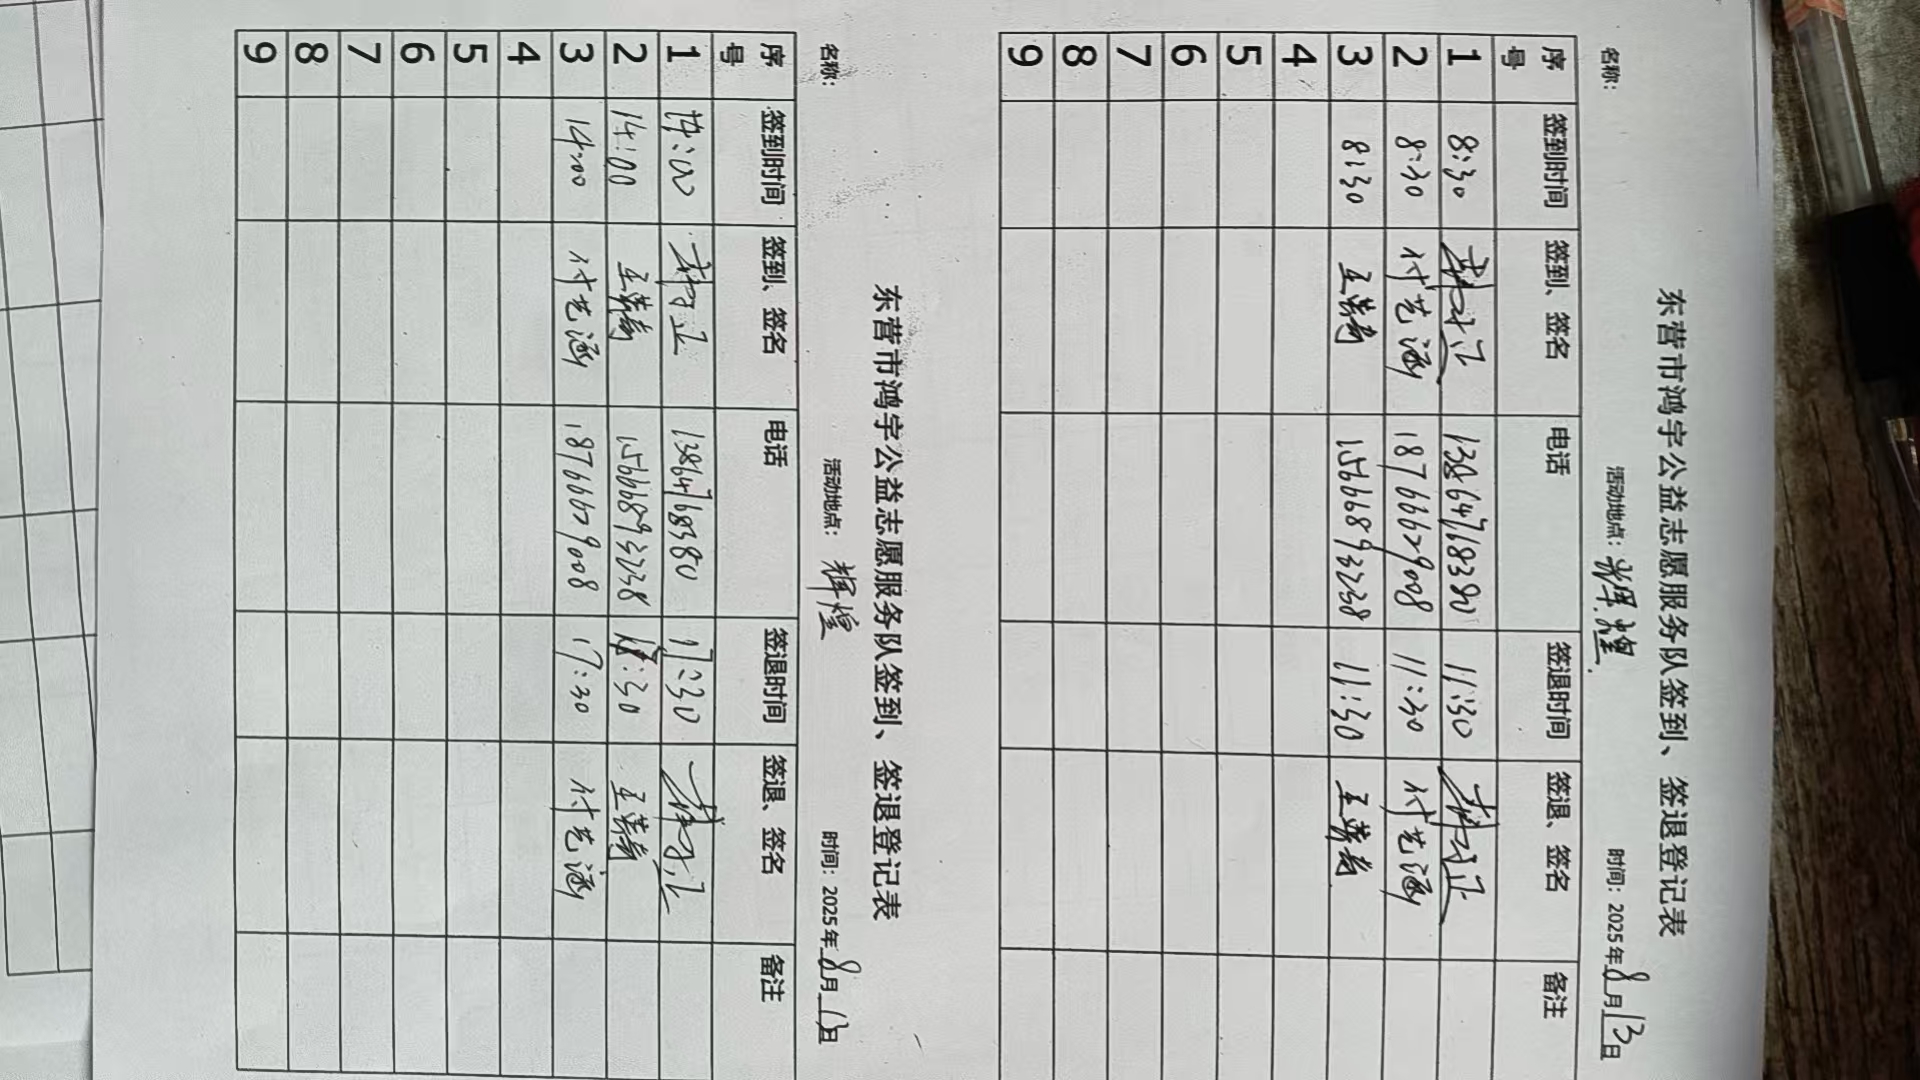 东营市鸿宇公益志愿服务队签到、签退登记表
名称： 活动地点：辉煌 时间：2025年8月13日
序号 签到时间 签到、签名 电话 签退时间 签退、签名 备注
1 8:30 13864768380 11:30
2 8:30 付艺涵 18766679008 11:30 付艺涵
3 8:30 王 15666893238 11:30 王
4
5
6
7
8
9
东营市鸿宇公益志愿服务队签到、签退登记表
名称： 活动地点：辉煌 时间：2025年8月13日
序号 签到时间 签到、签名 电话 签退时间 签退、签名 备注
1 14:00 13864768380 17:30
2 14:00 王 15666893238 :30 王
3 14:00 付艺涵 18766679008 17:30 付艺涵
4
5
6
7
8
9